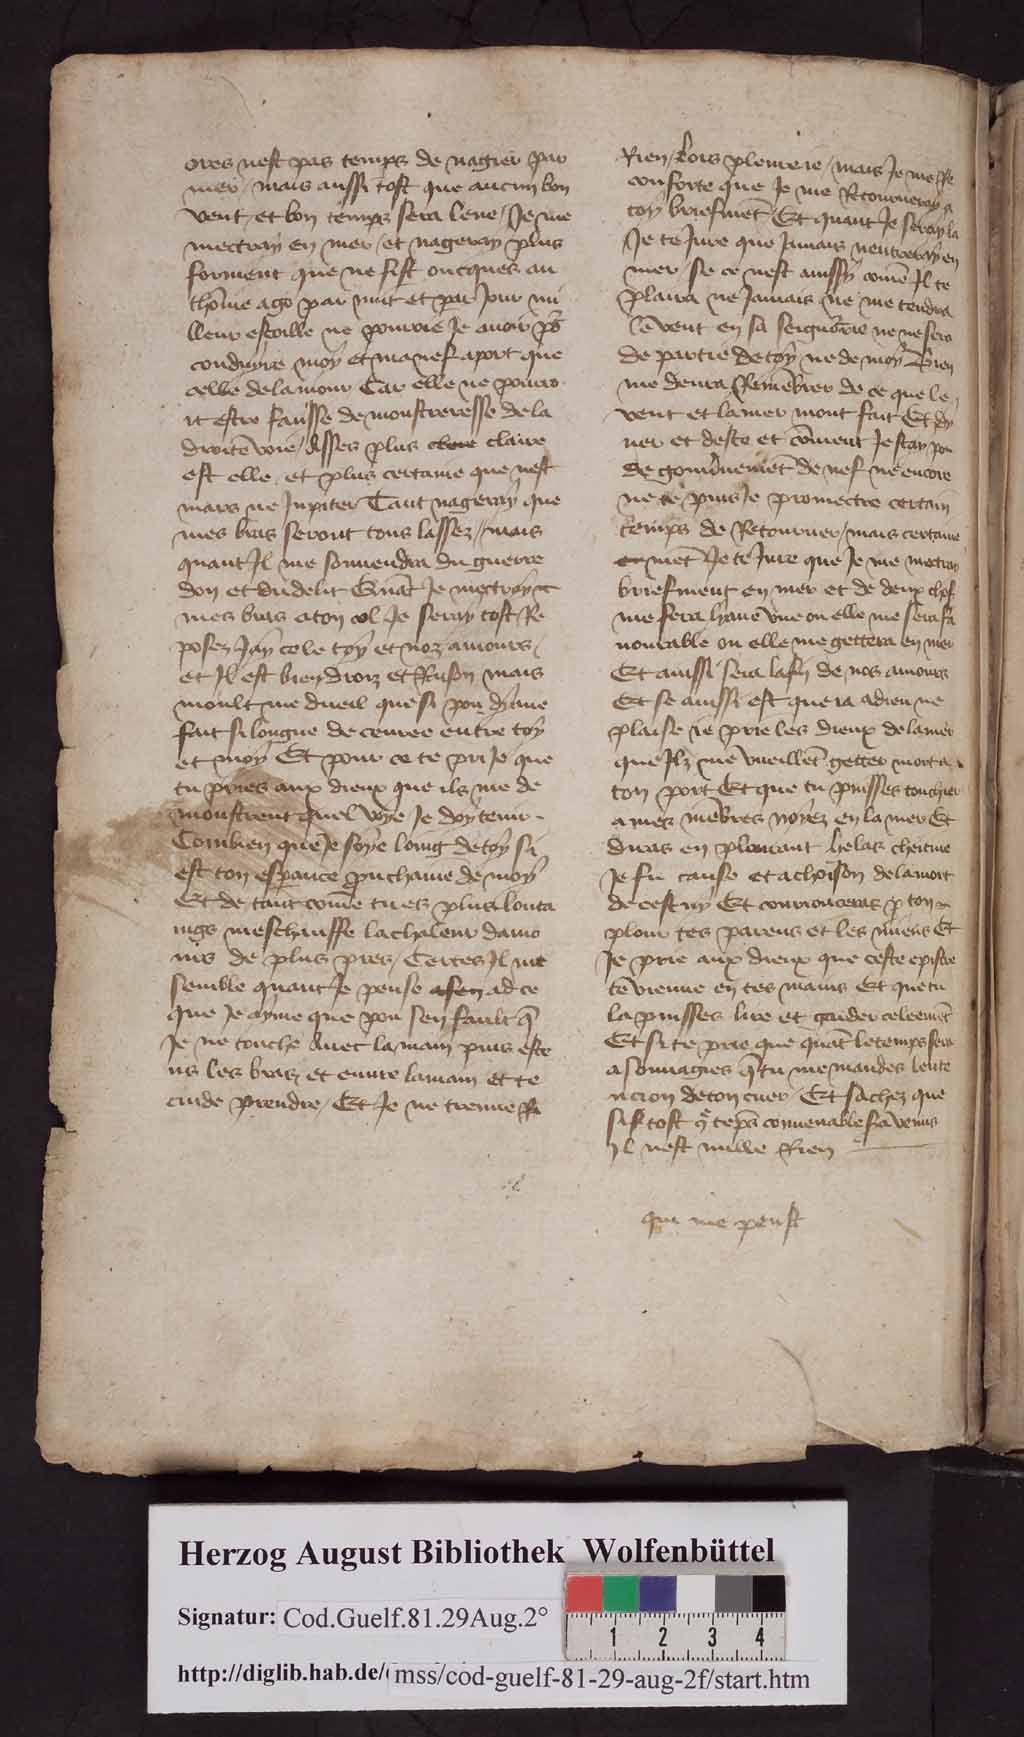 ores nest pas temps de nagier par
mer / mais aussi tost que aucun bon
vent et bon temps sera leue / Je me
mectray en mer / et nageray plus
forment que ne fist oncques an
thoīne ago par nuit et par Jour nu
lleur estoille ne pourrie Je auoir pͦ
conduyre moy et ma nef aport que
celle delamour Car elle ne pourro
it estre faulse demonstreresse dela
droitē voie / Asses plus claire
est elle / et plus certaine que nest
mars ne Jupiter Tant nageray que
mes bras seront tous lassez / mais
quant Jl me souuendra du guerre
don et du delit Quāt Je mectray
mes bras a ton col Je seray tost Re
posez Jay cele toy et noz amours /
et Jl est bien droiz et Raison mais
moult me dueil que si pou dyaue
fait si longue deceuree entre toy
et moy Et pour ce te pri Je que
tu pries aux dieux que ils me de
monstrent quel voye Je doy tenir .
Combien que Je soye loing de toy si
est ton esperance prouchaine de moy
Et de tant comē tu es plus lonta
ings meschauffe la chaleur damo
urs de plus pres / Certes Jl me
semble quant Je pense ad ce
que Je ayme que pou sen fault q̄
Je ne touche auec la main puis este
ns les bras et euure la main et te
cuide prendre / Et Je ne treuue Ri
Rien / Lors pleure ie / mais Je me Re
conforte que Je me Retourneray a
toy briefmēt Et quant Je seray la
Je te Jure que Jamais nentreray en
mer se ce nest aussy comē Jl te
plaira ne Jamais ne me tendra
le vent en sa seignorie ne ne sera
de partie de toy ne de moy Bien
me deura Remēbrer de ce que le
vent et lamer mont fait Et dy
uer et deste et cōment Je scay pou
de gouuernemēt de nef ne encore
ne te puis Je promectre certain
temps de Retourner / mais certaine
mēt Je te Jure que Je me mectray
briefment en mer et de deux chos
me sera lyaue vne ou elle me sera fa
uourable ou elle me gettera en mer
Et aussi sera la fin de nos amours
Et se aussi est que ia adieu ne
plaise ie prie les dieux dela mer
que Jlz me vueillēt getter mort a
ton port Et que tu puisses touchier
a mes mēbres noyez en la mer Et
diras en plourant helas cheitiue
Je fu cause et achoison dela mort
de cestuy Et courrouceras p ton
plour tes parens et les miens Et
Je prie aux dieux que ceste epistre
te vienne en tes mains Et que tu
la puisses lire et garder celeemēt
Et si te prie que quāt le temps sera
assouuagies q̄ tu me mandes lente
ncion de ton cuer / Et sachez que
si tost q̄ tēps conuenable sera venus
Jl nest nulle Rien
qui me peust
Herzog August Bibliothek Wolfenbüttel
Signatur: Cod.Guelf.81.29Aug.2°
1 2 3 4
http://diglib.hab.de/ mss/cod-guelf-81-29-aug-2f/start.htm